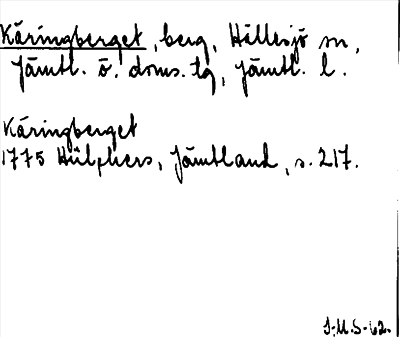 Käringberget, berg, Hällesjö sn,
Jämtl. ö. doms. tg, Jämtl. l.
Käringberget
1775 Hülphers, Jämtland, s. 217.
J.M.S-62.